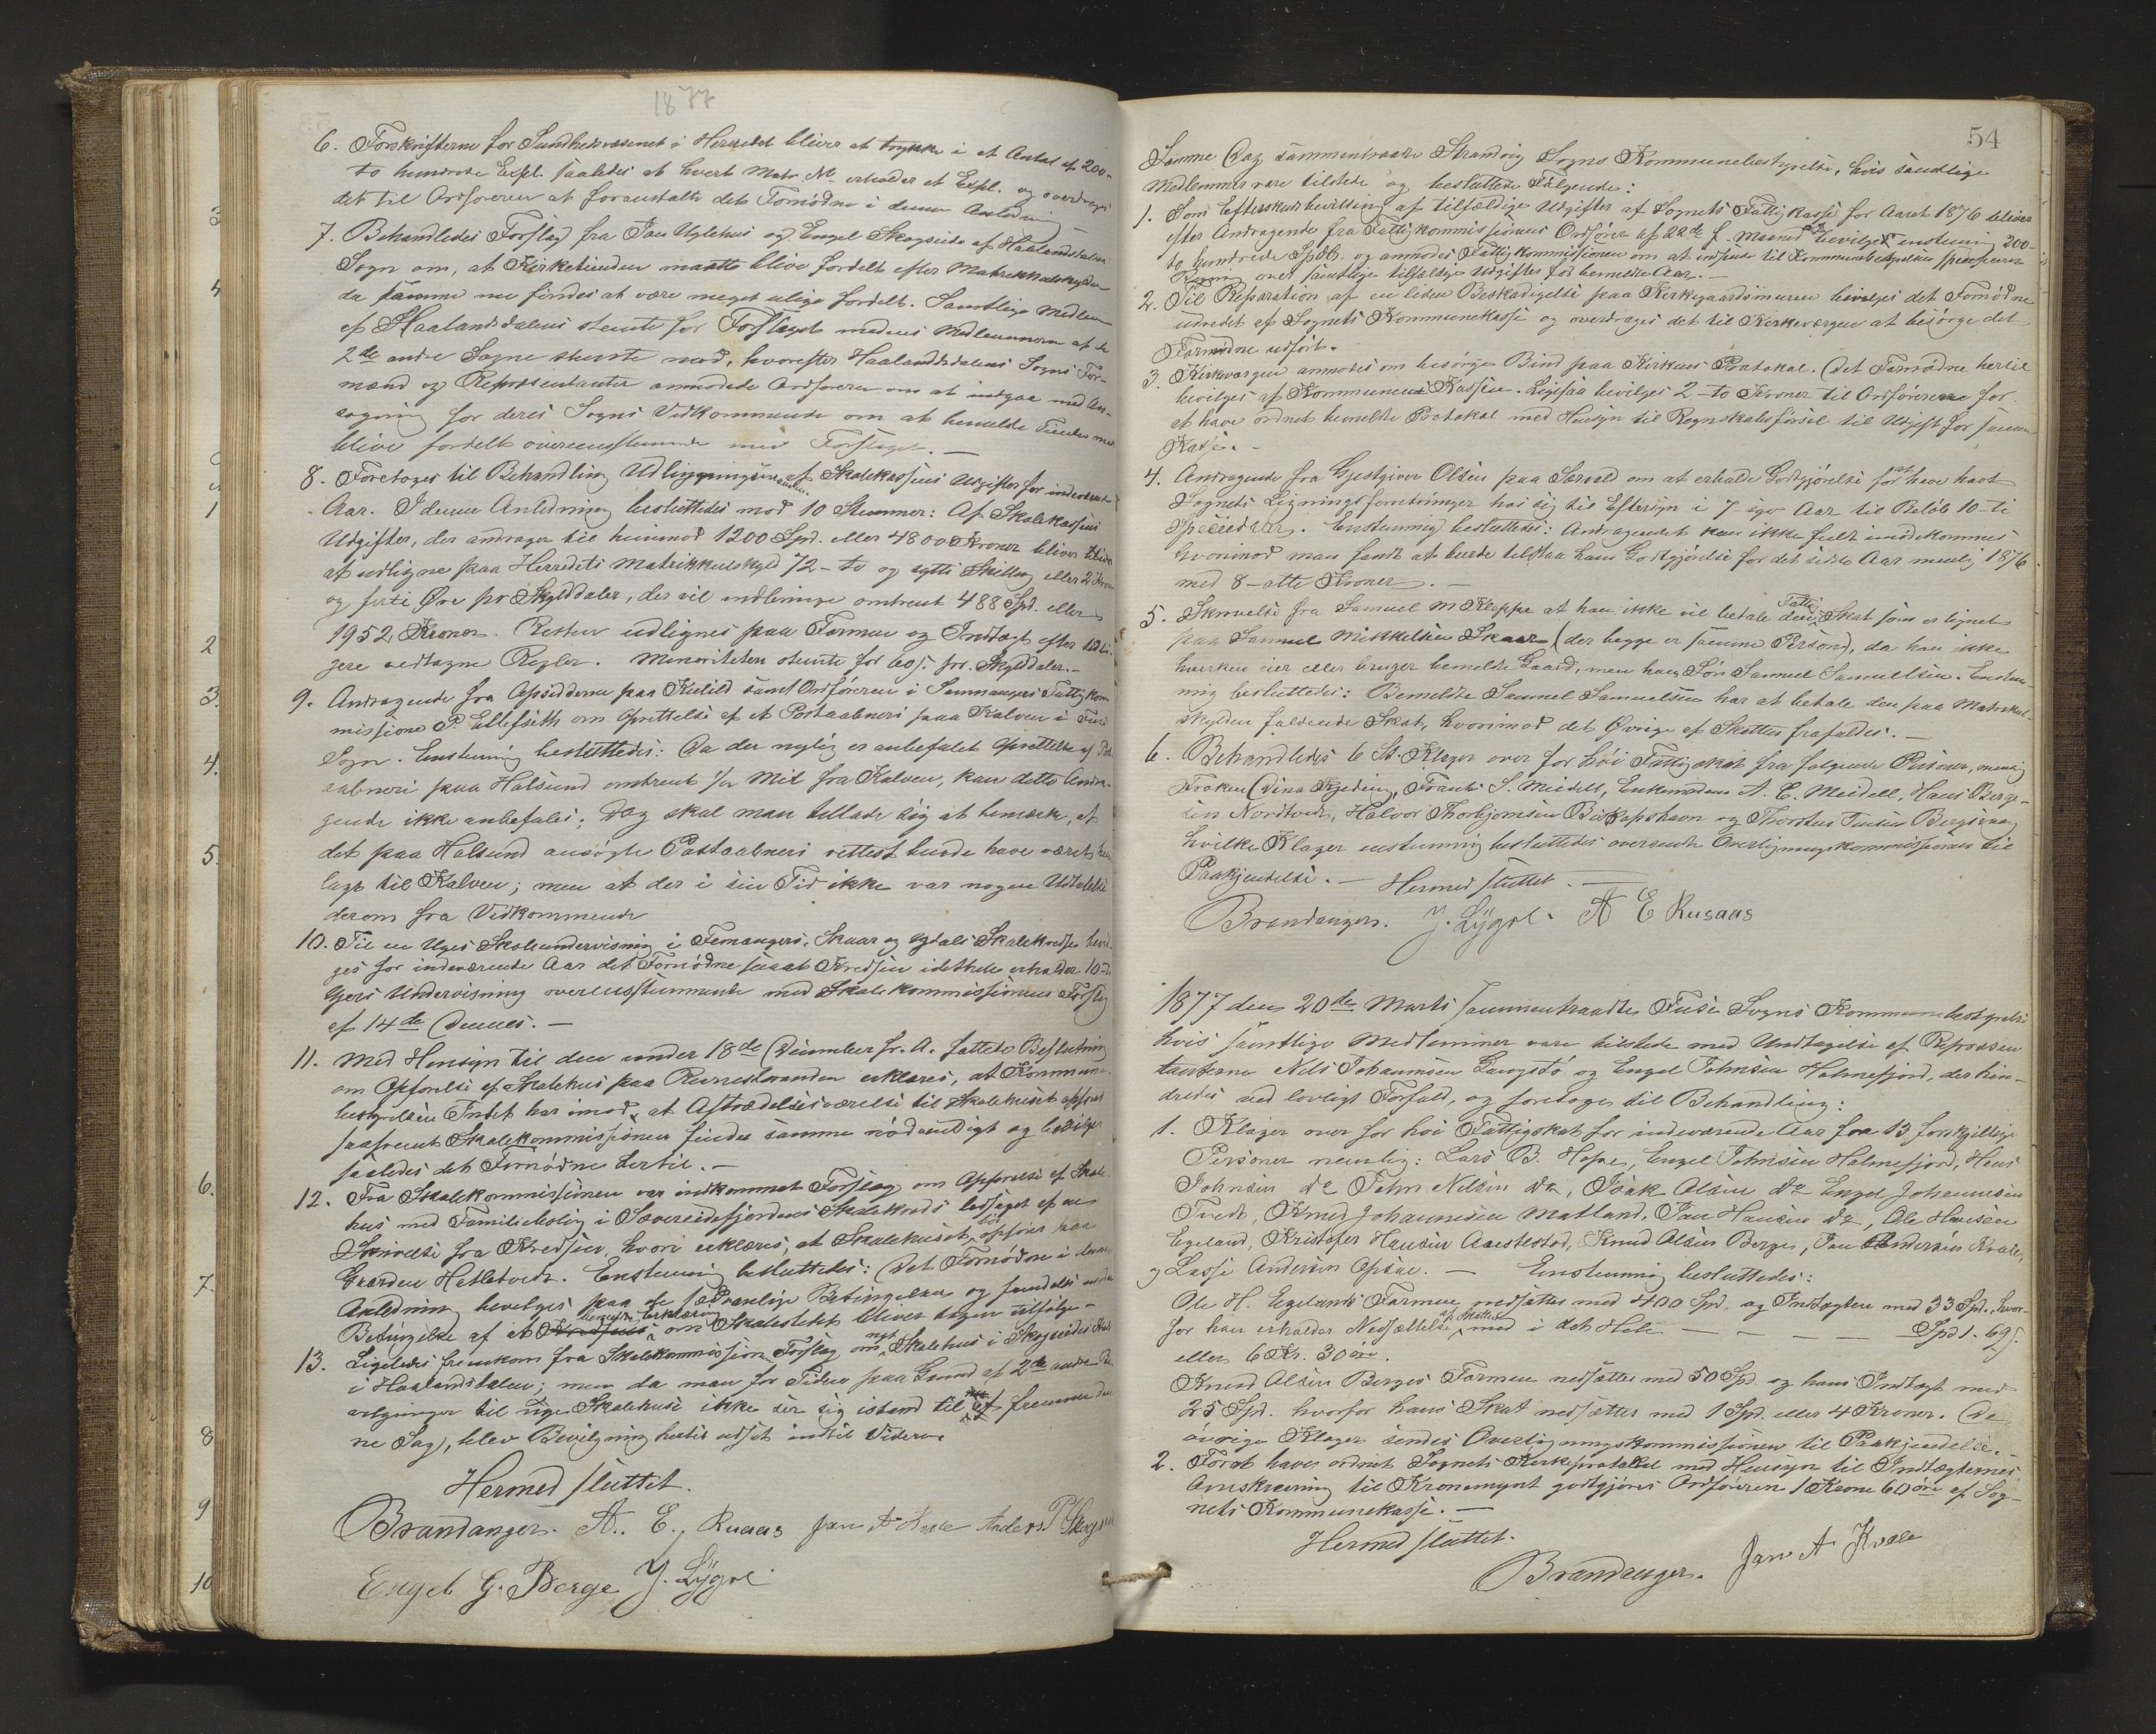 1877
6. Forskrifterne for Sundhedsvæsenet i Herredet bliver at trykke i et Antal af 200-
to hundrede Expl. saaledes at hvert Matr. No. erholder et Expl. og overdrages
det til Ordføreren at foranstalte det Fornødne i denne Anledning
7. Behandledes Forslag fra Jan Uglehus og Engel Skogseide af Haalandsdalens
Sogn om, at Kirketienden maatte blive fordelt efter Matrikkulskylden
da samme nu findes at være meget ulige fordelt. Samtlige Medlem
af Haalandsdalens stemte for Forslaget medens Medlemmerne af de
2de andre Sogne stemte mod, hvorefter Haalandsdalens Sogns For-
mænd og Repræsentanter anmodede Ordføreren om at indgaa med An-
søgning for deres Sogns Vidkommende om at bemeldte Tiende maa
blive fordelt overensstemmende med Forslaget. —
8. Foretoges til Behandling Udligningen af Skolekassens Udgifter for indeværende
Aar. I denne Anledning besluttedes mod 10 Stemmer: Af Skolekassens
Udgifter, der andrager til henimod 1200 Spd. eller 4800 Kroner bliver
at udligne paa Herredets Matrikkulskyld 72 - to og sytti Skilling eller 2 Kroner
og førti Øre pr Skylddaler, der vil indbringe omtrent 488 Spd. eller
1952 Kroner. Resten udlignes paa Formue og Indtægt efter tidli-
gere vedtagne Regler. Minoriteten stemte for 60 s. pr. Skylddaler. —
9. Andragende fra Opsidderne paa Kuhild samt Ordføreren i Samnangers Fattigkom
missione P. Ellefseth om Oprettelse af et Postaabneri paa Kalven i Fuse
Sogn. Enstemmig besluttedes: Da der nylig er anbefalet Oprettelse af Post-
aabneri paa Halsund omtrent 1/2 Mil fra Kalven, kan dette Andra-
gende ikke anbefales; Dog skal man tillade sig at bemærke, at
det paa Halsund ansøgte Postaabneri rettest burde have været hen
lagt til Kalven; men at der i sin Tid ikke var nogen Udtalelse
derom fra Vedkommende
10. Til en Uges Skoleundervisning i Femangers, Skaar og Ydals Skolekredse bevil-
ges for indeværende Aar det Fornødne saaat Kredsen idethele erholder 10-ti
Ugers Undervisning overensstemmende med Skolekommissionens Forslag
af 14de Dennes. —
11. Med Hensyn til den under 18de December fr. A. fattede Beslutning
om Opførelse af Skolehus paa Revnestranden erklæres, at Kommune
bestyrelsen Intet har imod, at Aftrædelsesværelse til Skolehuset opføres
saafremt Skolekommissionen finder samme nødvendigt og bevilges
saaledes det Fornødne hertil. —
12. Fra Skolekommissionen var indkommet Forslag om Opførelse af Skole
hus med Familiebolig i Sævereidefjordens Skolekreds ledsaget af en
Skrivelse fra Kredsen, hvori erklæres, at Skolehuset bør opføres paa
Gaarden Hetletvedt. Enstemmig besluttedes: Det Fornødne i denne
Anledning bevilges paa de sædvanlige Betingelser og fremdeles under
Betingelse af at Kredsens Erklæring om Skolestedet bliver tagen tilfølge —
13. Ligeledes fremkom fra Skolekommission Forslag om nyt Skolehus i Skogseides Kreds
i Haalandsdalen; men da man for Tiden paa Grund af 2de andre Be
vilgninger til nye Skolehuse ikke ser sig istand til at fremme den
ne Sag, blev Bevilgning hertil udsat indtil Videre.
Hermed sluttet.
Brandanger. A. E. Rusaas Jan A Kvale Anders P Skogseid
Engel G. Berge J. Lygre
54
Samme Dag sammentraadte Strandvig Sogns Kommunebestyrelse, hvis samtlige
Medlemmer vare tilstede og besluttede Følgende:
1. Som Efterskudsbevilling af tilfældige Udgifter af Sognets Fattigkasse for Aaret 1876 bliver
efter Andragende fra Fattigkommissionens Ordfører af 22de f. Maaned at bevilges enstemmig 200-
to hundrede Spdlr. og anmodes Fattigkommissionen om at indsende til Kommunebestyrelsen specificeret
Regning over samtlige tilfældige Udgifter for bemeldte Aar. —
2. Til Reparation af en liden Beskadigelse paa Kirkegaardsmuren bevilges det Fornødne
udredet af Sognets Kommunekasse og overdrages det til Kirkeværgen at besørge det
Fornødne udført.
3. Kirkeværgen anmodes om besørge Bind paa Kirkens Protokol. Det Fornødne hertil
bevilges af Kommunens Kassen. Ligesaa bevilges 2 - to Kroner til Ordføreren for
at have ordnet bemeldte Protokol med Hensyn til Regnskabsførsel til Udgift for samme
Kasse. —
4. Andragende fra Gjestgiver Olsen paa Sævold om at erholde Godtgjørelse for at have havt
Sognets Ligningsforretninger hos sig til Eftersyn i 7 syv Aar til Beløb 10 - ti
Speciedaler. Enstemmig besluttedes: Andragendet kan ikke fuldt imødekommes
hvorimod man fandt at burde tilstaa ham Godtgjørelse for det sidste Aar nemlig 1876
med 8 - otte Kroner. —
5. Skrivelse fra Samuel M Kleppe at han ikke vil betale den Fattig Skat som er lignet
paa Samuel Mikkelsen Skaar (der begge er samme Person), da han ikke
hverken eier eller bruger bemeldte Gaard, men hans Søn Samuel Samuelsen. Enstem-
mig besluttedes: Bemeldte Samuel Samuelsen har at betale den paa Matrskul-
skylden faldende Skat, hvorimod det Øvrige af Skatten frafaldes. —
6. Behandledes 6 St. Klager over for høi Fattigskat fra følgende Personer, nemlig
Frøken Dina Gjeding, Frants S. Meidell, Enkemadam A. C. Meidell, Hans Berge-
sen Nordtvedt, Halvor Thorbjørnsen Bispshavn og Thorsten Tensen Bergsvaag
hvilke Klager enstemmig besluttedes oversendte Overligningskommissionen til
Paakjendelse. — Hermed sluttet. —
Brandanger. J. Lygre. A E Rusaas
1877 den 20de Marts sammentraadte Fuse Sogns Kommunebestyrelse
hvis samtlige Medlemmer vare tilstede med Undtagelse af Repræsen
tanterne Nils Johannesen Gangstø og Engel Johnsen Holmefjord, der hin-
dredes ved lovligt Forfald, og foretoges til Behandling:
1. Klager over for høi Fattigskat for indeværende Aar fra 13 forskjellige
Personer nemlig: Lars B. Hope, Engel Johnsen Holmefjord, Hans
Johnsen do John Nilsen do, Isak Olsen do Engel Johannesen
Tvedt, Knud Johannesen Matland, Jan Hansen do, Ole Hansen
Egeland, Kristofer Hansen, Knud Olsen Berge, Jan Andersen Kvale,
og Lasse Andersen Opsal. — Enstemmig besluttedes:
Ole H. Egelands Formue nedsættes med 400 Spd. og Indtægten med 33 Spd. hvor-
for han erholder Nedsættelse af Skatten med i det Hele — — — — Spd 1. 69 s.
eller 6 Kr. 30 øre.
Knud Olsen Berges Formue nedsættes med 50 Spd. og hans Indtægt med
25 Spd. hvorfor hans Skat nedsættes med 1 Spd. eller 4 Kroner. De
øvrige Klager sendes Overligningskommissionen til Paakjendelse. —
2. For at have ordnet Sognets Kirkeprotokol med Hensyn til Indtægternes
Omskrivning til Kronemynt godtgjøres Ordføreren 1 Krone 60 øre af Sog-
nets Kommunekasse. —
Hermed sluttet.
Brandanger. Jan A Kvale
3
4
1
2
3.
4.
5.
6.
7.
8
9
10